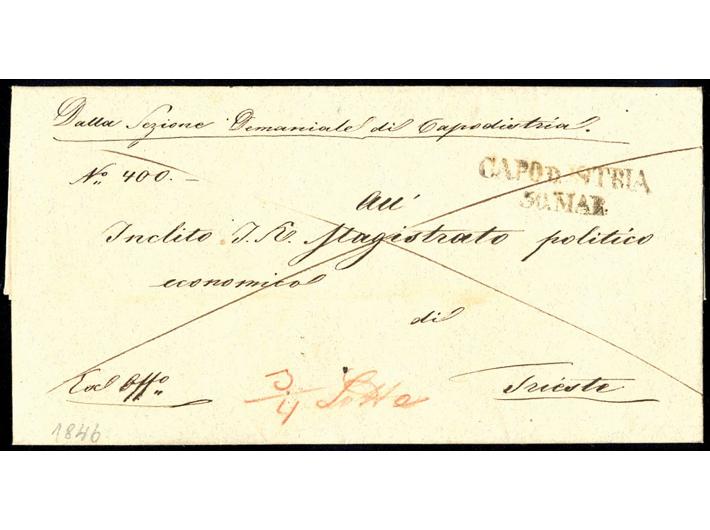 Dalla Sezione Demaniale di Capodistria.
No. 400.—
CAPOD'ISTRIA
30. MAR.
All'
Inclito I. R. Magistrato politico
economico
di
Ex Offo
3/4 Lotto
Trieste
1846